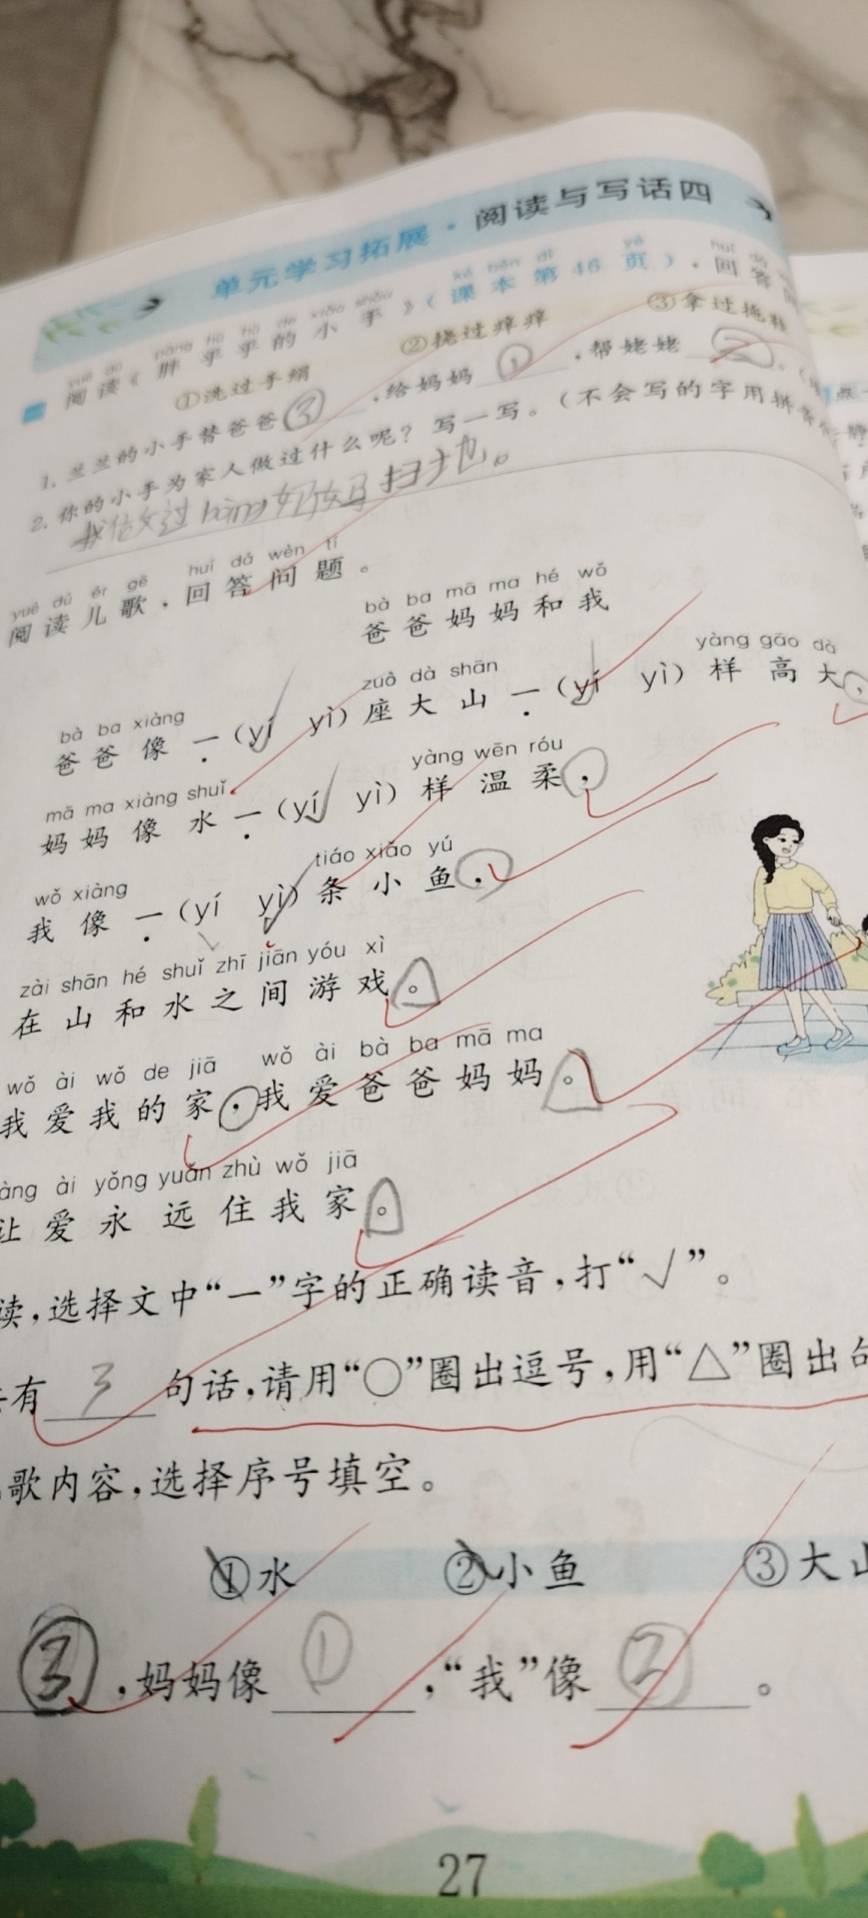 单元学习拓展·阅读与写话四
yuè dú pàng hū hū de xiǎo shǒu kè běn dì yè huí dá
一 阅读《胖乎乎的小手》(课本第46页),回答
①洗过手绢 ②挠过痒痒 ③拿过拖鞋
1. 兰兰的小手替爸爸③,给妈妈①,帮姥姥②。
2. 你的小手为家人做过什么呢?写一写。(不会写的字用拼音
过 bāng 妈妈扫地。
yuè dú ér gē huí dá wèn tí
阅读儿歌,回答问题。
bà ba mā ma hé wǒ
爸爸妈妈和我
bà ba xiàng zuò dà shān yàng gāo dà
爸爸像一(yí√ yì)座大山一(yí√ yì)样高大,
mā ma xiàng shuǐ yàng wēn róu
妈妈像水一(yí√ yì)样温柔,
wǒ xiàng tiáo xiǎo yú
我像一(yí yì√)条小鱼,
zài shān hé shuǐ zhī jiān yóu xì
在山和水之间游戏。
wǒ ài wǒ de jiā wǒ ài bà ba mā ma
我爱我的家,我爱爸爸妈妈。
àng ài yǒng yuǎn zhù wǒ jiā
让爱永远住我家。
读,选择文中“一”字的正确读音,打“√”。
有3句话,请用“○”圈出逗号,用“△”圈出句
歌内容,选择序号填空。
①水 ②小鱼 ③大山
③,妈妈像①,“我”像②。
27